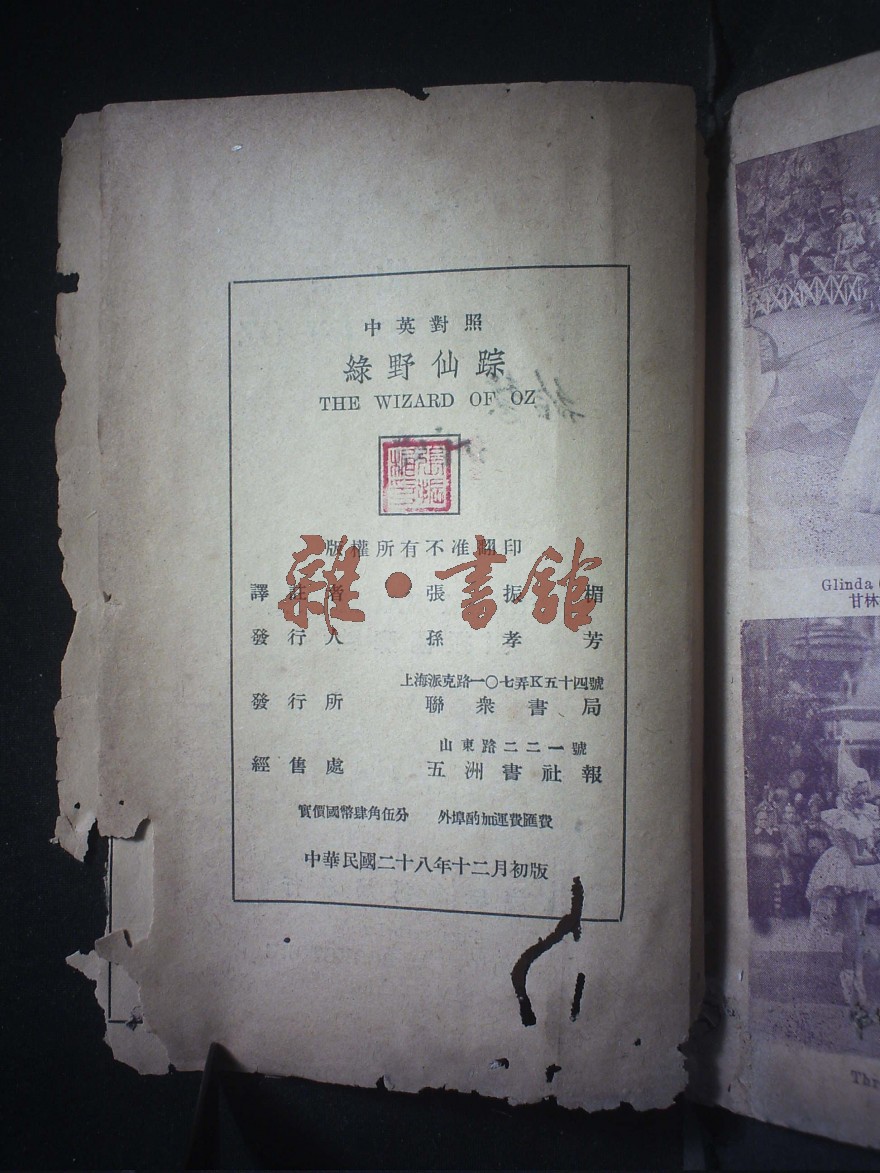 中英對照
綠野仙踪
THE WIZARD OF OZ
張振楣印
版權所有不准翻印
雜·書館
譯註者 張振楣
發行人 孫孝芳
上海派克路一〇七弄K五十四號
發行所 聯衆書局
山東路二二一號
經售處 五洲書社報
實價國幣肆角伍分 外埠酌加運費匯費
中華民國二十八年十二月初版
Glinda
甘林